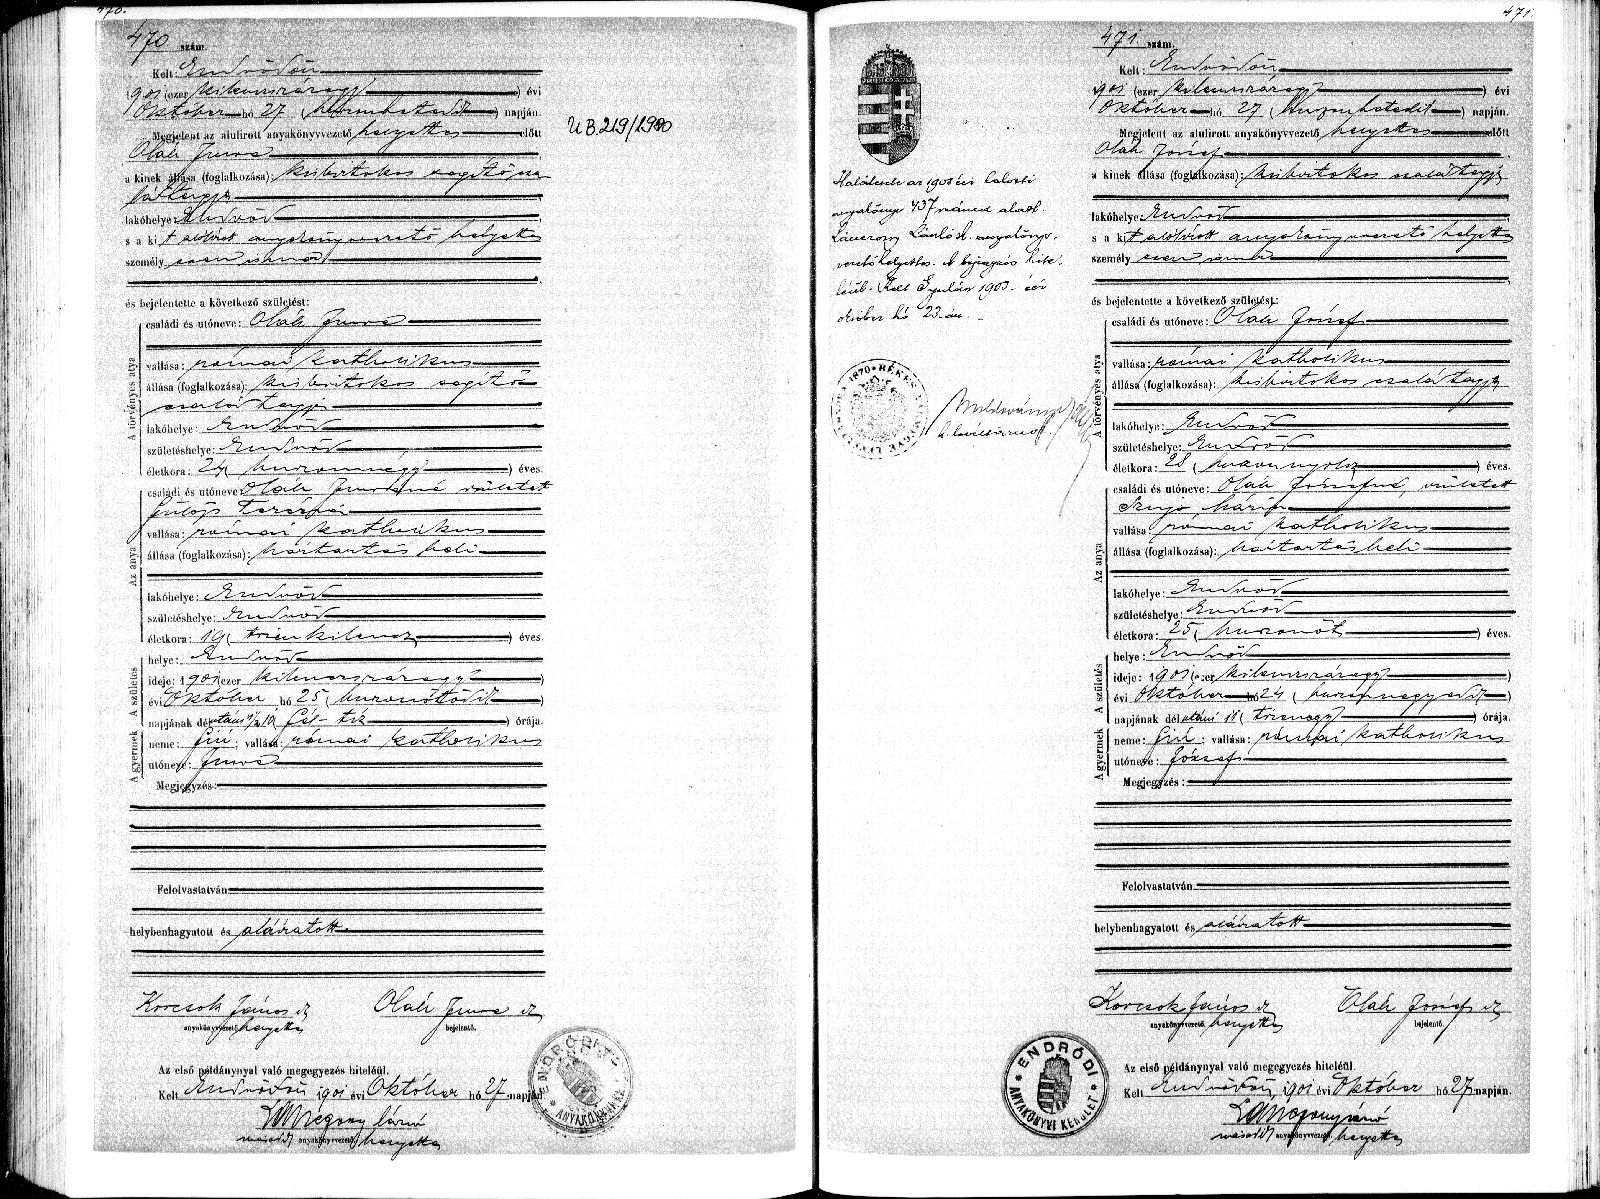 470.
470 szám.
Kelt: Endrődön
1901 (ezer kilenczszázegy) évi
Október hó 27 (huszonhetedik) napján.
Megjelent az alulirott anyakönyvvezető helyettes előtt
Oláh
a kinek állása (foglalkozása): kisbirtokos segítő csa-
ládtagja
lakóhelye: Endrőd
s a kit alólírott anyakönyvvezető helyettes
személyesen ismer
és bejelentette a következő születést:
A törvényes atya
családi és utóneve: Oláh
vallása: római katholikus
állása (foglalkozása): kisbirtokos segítő
családtagja
lakóhelye: Endrőd
születéshelye: Endrőd
életkora: 24 (huszonnégy) éves.
Az anya
családi és utóneve: Oláh született
Fülöp Terézia
vallása: római katholikus
állása (foglalkozása): háztartásbeli
lakóhelye: Endrőd
születéshelye: Endrőd
életkora: 19 (tizenkilencz) éves.
A születés
helye: Endrőd
ideje: 1901 (ezer kilenczszázegy)
évi Október hó 25 (huszonötödik)
napjának délutáni ½10 (fél-tíz) órája.
A gyermek
neme: fiú; vallása: római katholikus
utóneve:
Megjegyzés:
Felolvastatván
helybenhagyatott és aláíratott.
Korcsok János sk Oláh sk
anyakönyvvezető helyettes bejelentő.
Az első példánynyal való megegyezés hiteléül.
Kelt Endrődön 1901 évi Október hó 27 napján
másodk anyakönyvvezető helyettes
UB.219/1980
471.
471 szám.
Kelt: Endrődön
1901 (ezer kilenczszázegy) évi
Október hó 27 (huszonhetedik) napján.
Megjelent az alulirott anyakönyvvezető helyettes előtt
Oláh József
a kinek állása (foglalkozása): kisbirtokos családtagja
lakóhelye: Endrőd
s a kit alólírott anyakönyvvezető helyettes
személyesen ismer
és bejelentette a következő születést:
A törvényes atya
családi és utóneve: Oláh József
vallása: római katholikus
állása (foglalkozása): kisbirtokos családtagja
lakóhelye: Endrőd
születéshelye: Endrőd
életkora: 28 (huszonnyolcz) éves.
Az anya
családi és utóneve: Oláh Józsefné, született
Mária
vallása: római katholikus
állása (foglalkozása): háztartásbeli
lakóhelye: Endrőd
születéshelye: Endrőd
életkora: 25 (huszonöt) éves.
A születés
helye: Endrőd
ideje: 1901 (ezer kilenczszázegy)
évi Október hó 24 (huszonnegyedik)
napjának délutáni 11 (tizenegy) órája.
A gyermek
neme: fiú; vallása: római katholikus
utóneve: József
Megjegyzés:
Felolvastatván
helybenhagyatott és aláíratott
Korcsok János sk Oláh József sk
anyakönyvvezető helyettes bejelentő.
Az első példánynyal való megegyezés hiteléül.
Kelt Endrődön 1901 évi Október hó 27 napján.
másodk anyakönyvvezető helyettes
Halálesete az évi halotti
anyakönyv 437 szám alatt.
László s.k. anyakönyv-
vezető helyettes. A bejegyzés hite-
léül. Kelt Gyulán 1903. évi
október hó 23-án.
ENDRŐDI
ANYAKÖNYVI KERÜLET